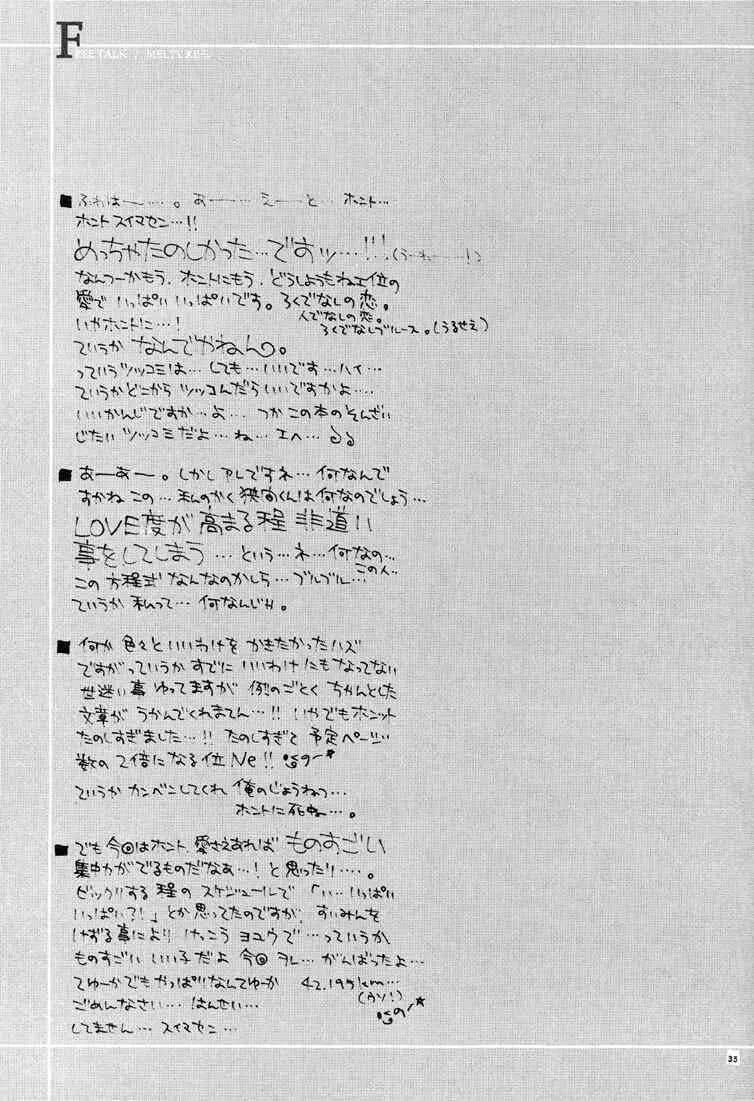 FREE TALK
■ ふわはー…。あー… えーと… ホント…
ホント スイマセン…!!
めっちゃたのしかった…ですッ…!!!(うーねーー!)
なんつーかもう、ホントにもう、どうしょうもねェ位の
愛で いっぱい いっぱいです。ろくでなしの恋。
人でなしの恋。
いやホントに…!
ろくでなしブルース。(うるせえ)
ていうか なんでやねん。
っていうツッコミは… しても… いいです… ハイ…
ていうかどこから ツッコんだらいいですかよ…
いいかんじですか… よ… つか この本のそんざい
じたい ツッコミだよ… ね… エヘ…
■ あーあー。しかしアレですネ… 何なんで
すかね この… 私のかく 狭間くんは何なのでしょう…
LOVE度が 高まる程 非道い
事をしてしまう … という…ネ… 何なの…
この人…
この 方程式 なんなのかしら… ブルブル…
ていうか 私って… 何なんじゃ。
■ 何か 色々と いいわけを かきたかったハズ
ですがっていうか すでに いいわけにもなってない
世迷い事 ゆってますが 例のごとく ちゃんとした
文章が うかんでくれません…!! いやでもホンット
たのしすぎました…!! たのしすぎて 予定ページ
数の 2倍になる位 Ne!!
ていうか カンベンしてくれ 俺のじょうねつ…
ホントに死ね…。
■ でも 今回はホント、愛さえあれば ものすごい
集中力がでるものだなぁ…! と思ったり…。
ビックリする程の スケジュールで 「い… いっぱい
いっぱい?!」とか思ってたのですが、すいみんを
けずる事により けっこう ヨユウで …っていうか
ものすごい いい子だよ 今回 オレ… がんばったよ…
てゆーかでもやっぱりなんてゆーか 42.195km…
(ウソ!)
ごめんなさい… はんせい…
してません… スイマセン…
35